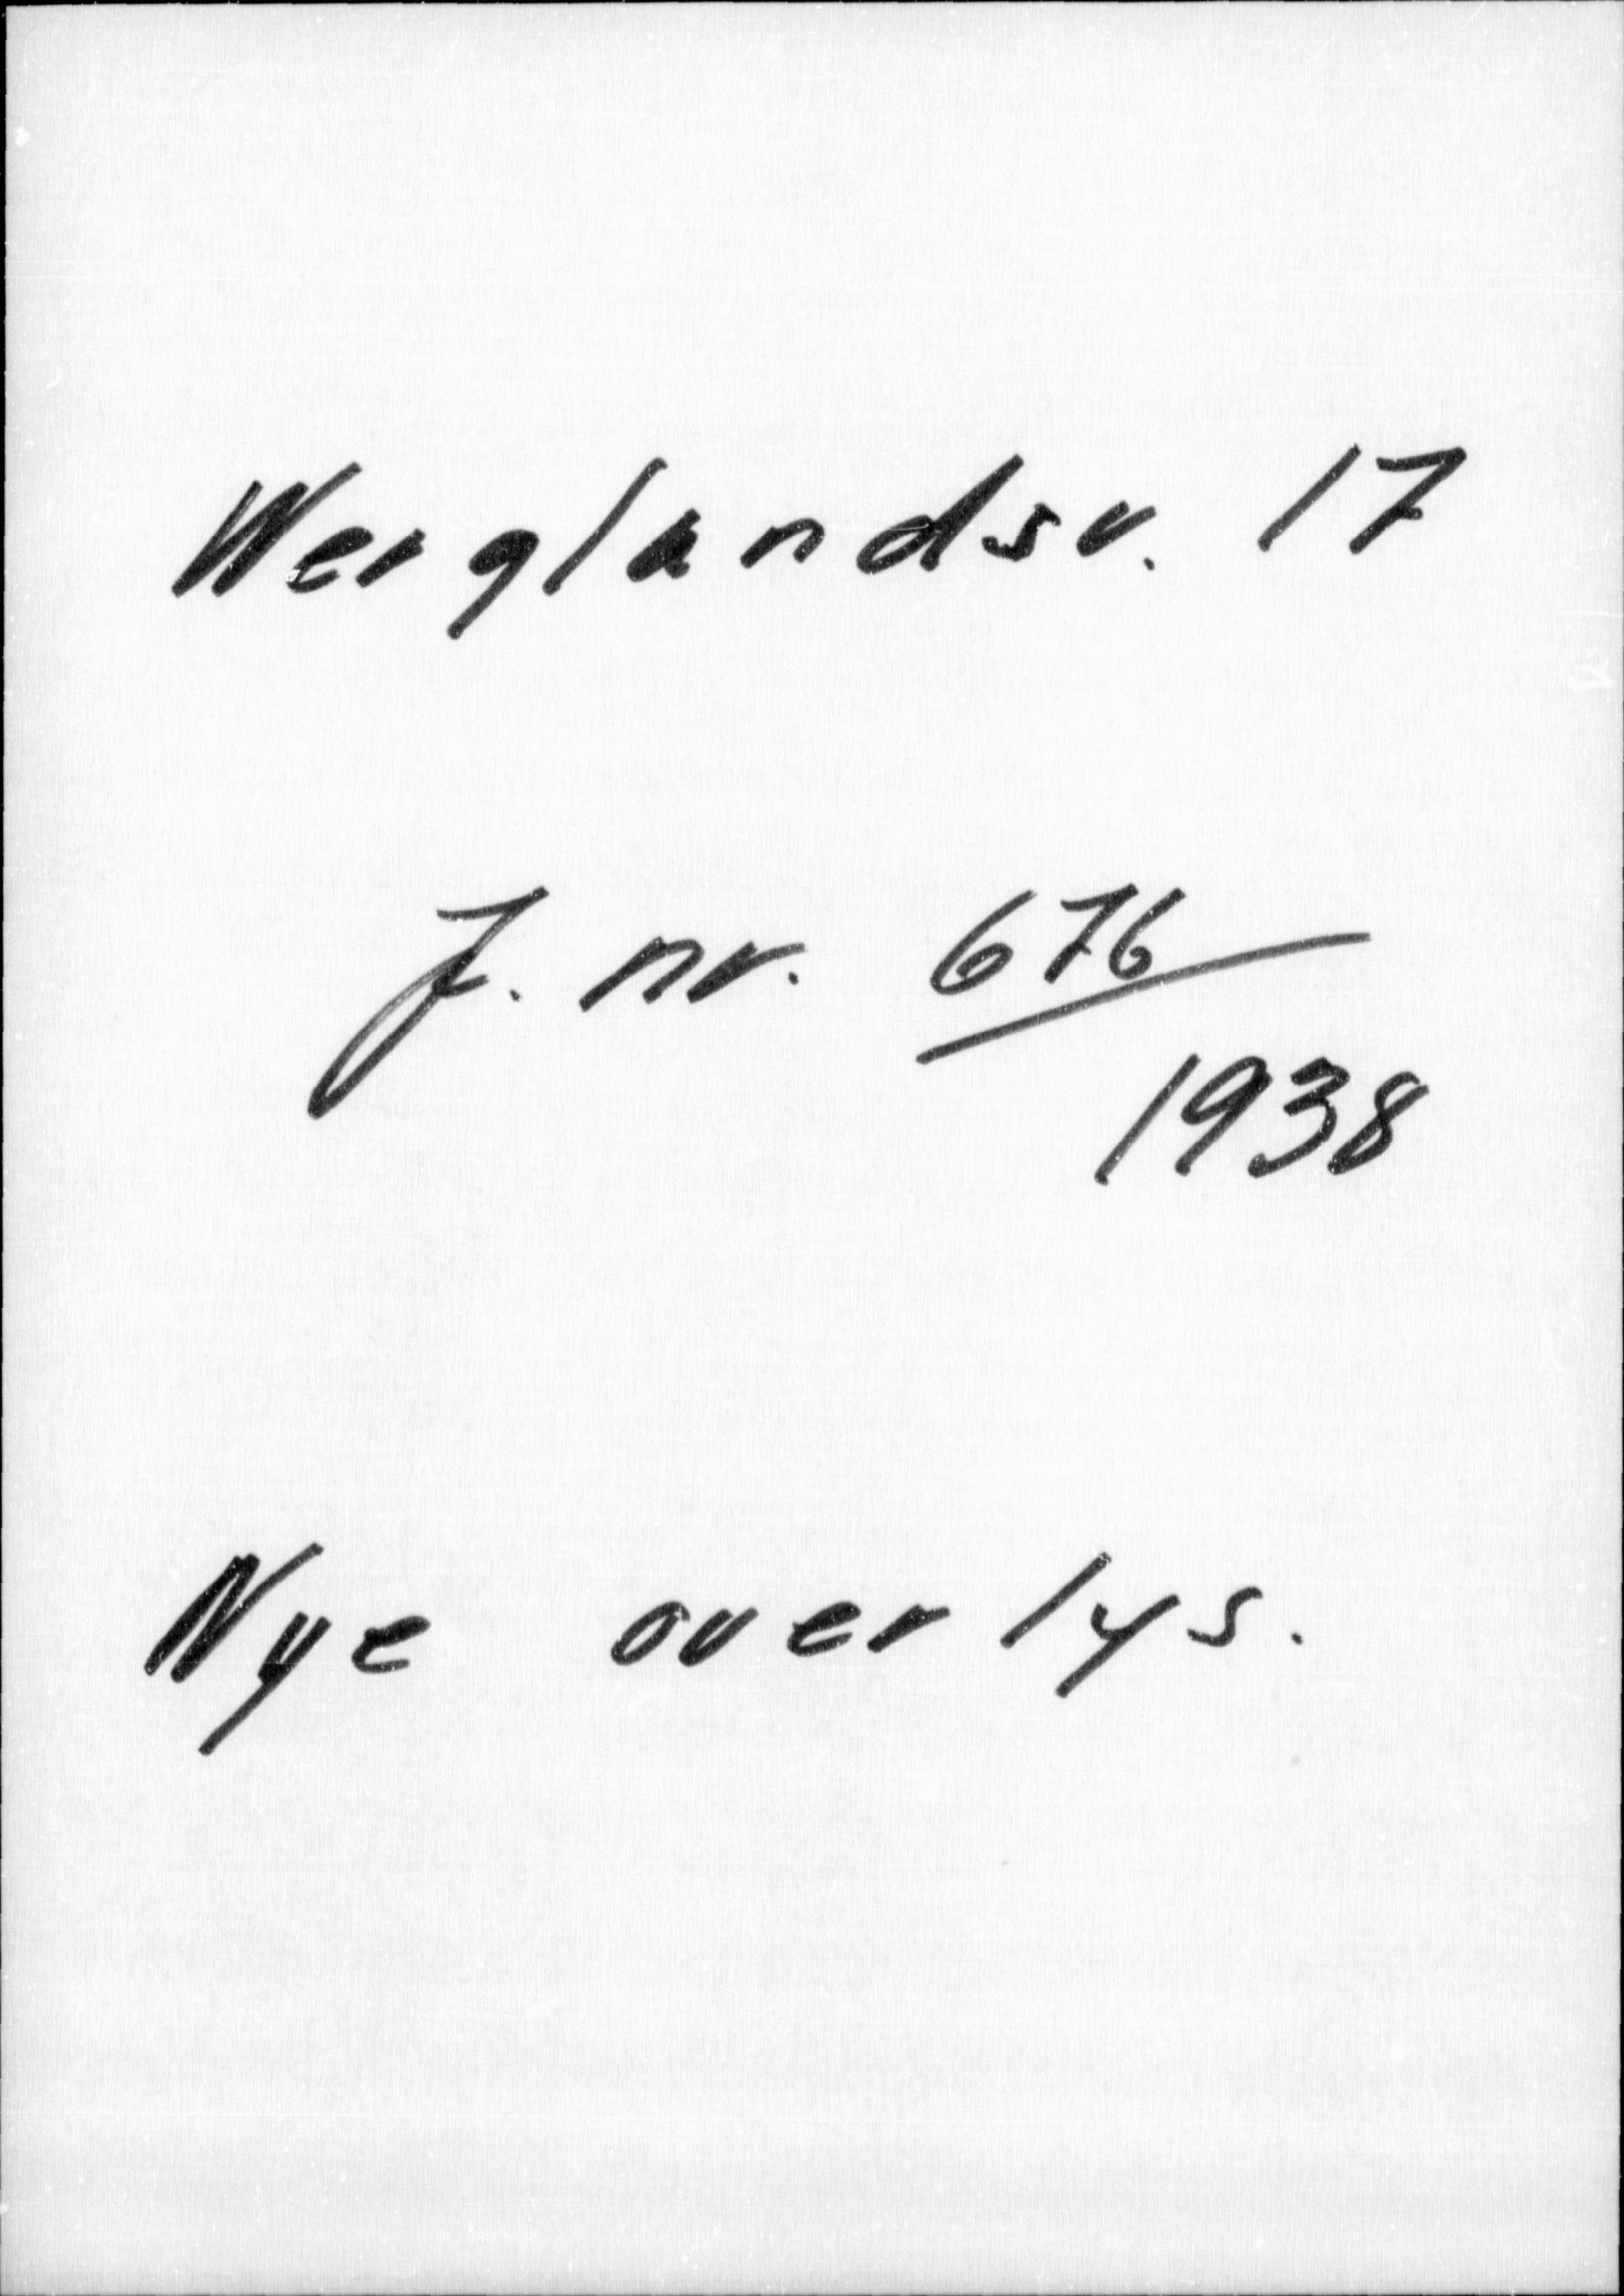 Werglandsv. 17
J. nr. 676/1938
Nye overlys.